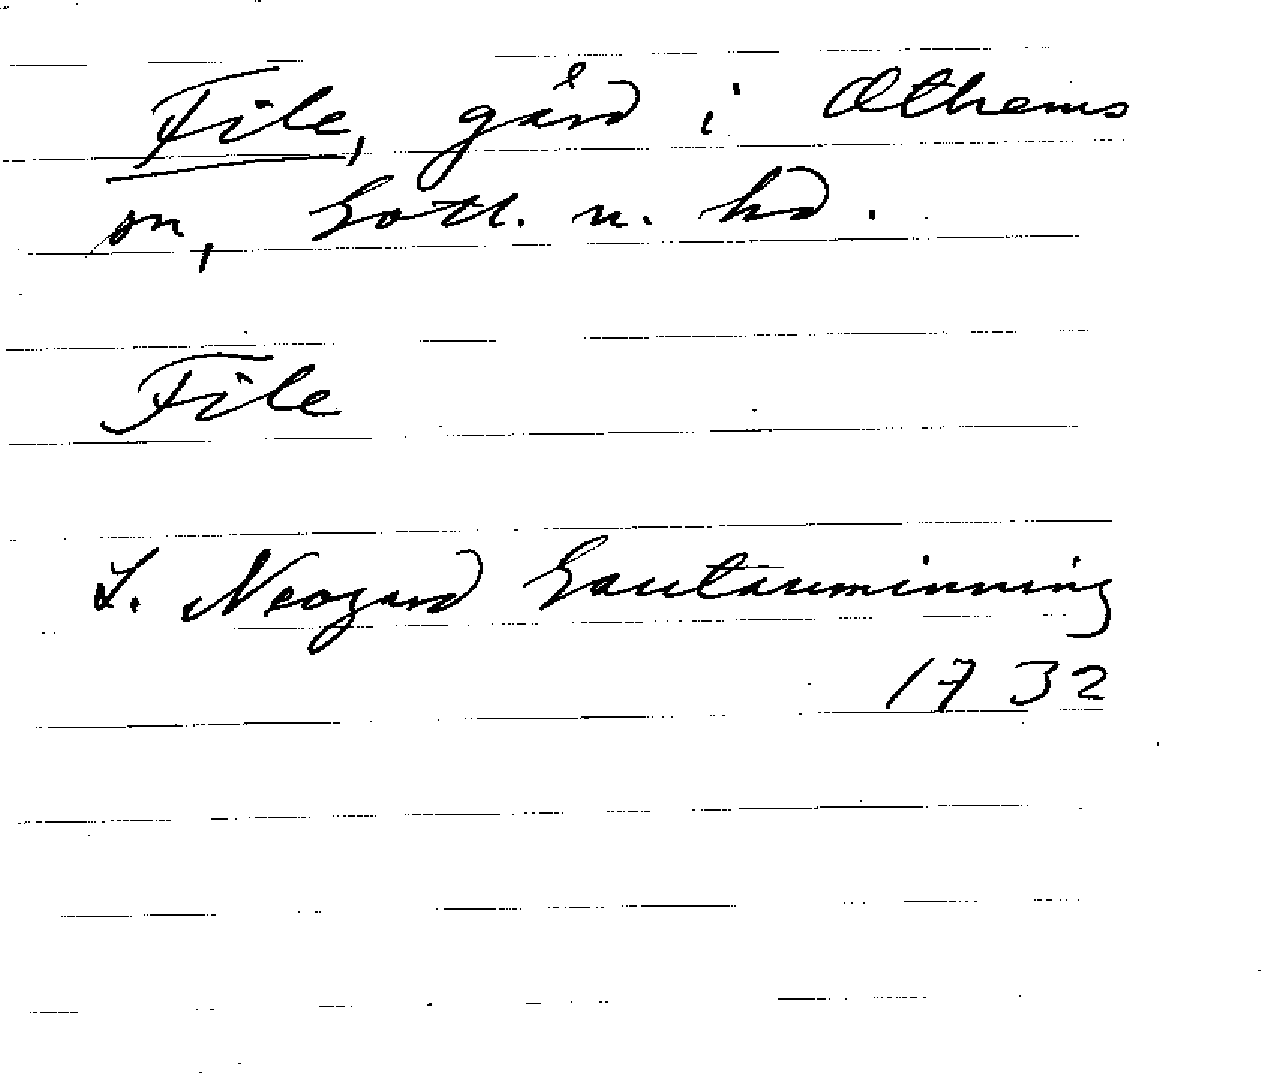 File, gård i Othems
sn, Gotl. n. hd.
File
L. Neogard Gautauminning
1732